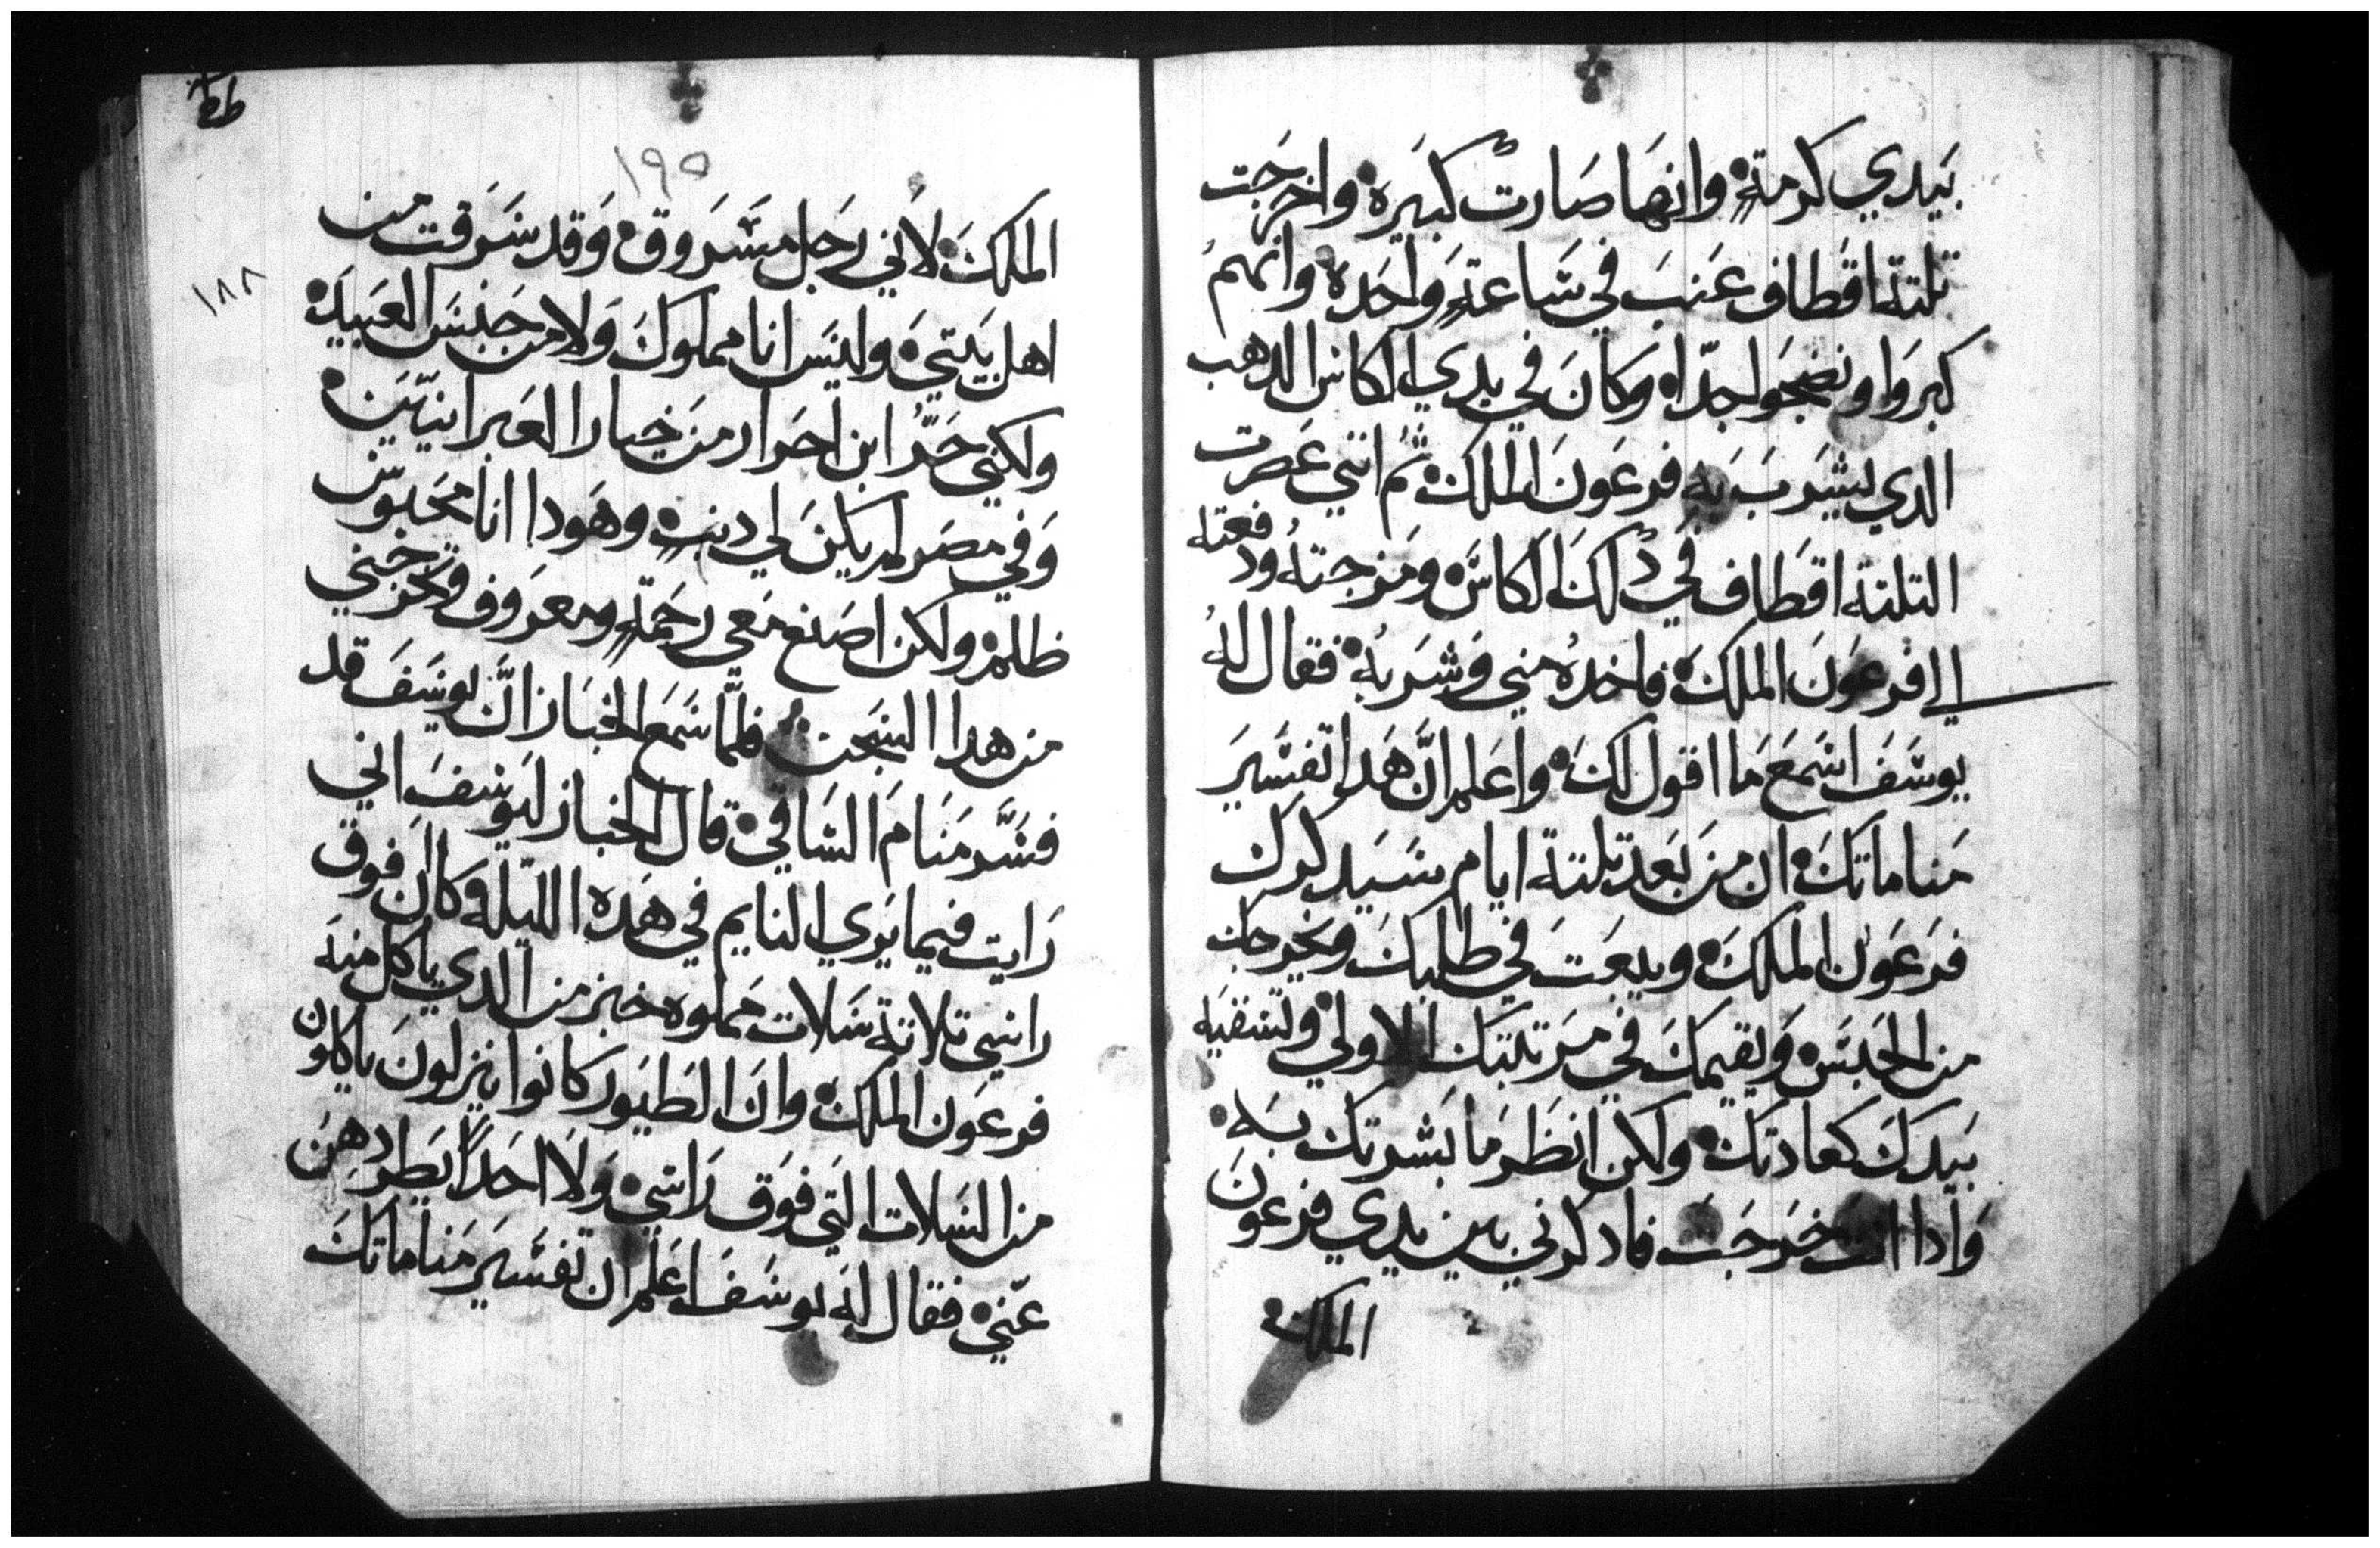 بيدي كرمة وانها صارت كبيرة واخرجت
تلتة اقطاف عنب في ساعة واحدة وانهم
كبروا ونضجوا جدا وكان في يدي الكاس الدهب
الدي يشرب به فرعون الملك ثم انني عصرت
التلتة اقطاف في دلك الكاس ومزجته ودفعته
الي فرعون الملك فاخده مني وشربه فقال له
يوسف اسمع ما اقول لك واعلم ان هدا تفسير
مناماتك ان من بعد تلتة ايام سيدكرك
فرعون الملك ويبعت في طلبك ويخرجك
من الحبس ويقيمك في مرتبتك الاولي وتسقيه
بيدك كعادتك ولكن انظر ما بشرتك به
وادا انت خرجت فادكرني بين يدي فرعون
الملك
١٩٥
١٨٨
الملك لاني رجل مسروق وقد سرقت من
اهل بيتي وليس انا مملوك ولا من جنس العبيد
ولكني حر ابن احرار من خيار العبرانيين
وفي مصر لم يكن لي دنب وهودا انا محبوس
ظلم ولكن اصنع معي رحمة ومعروف وتخرجني
من هدا السجن فلما سمع الخباز ان يوسف قد
فسر منام الساقي قال الخباز ليوسف اني
رايت فيما يري النايم في هده الليلة وكان فوق
راسي تلاتة سلات مملوه خبز من الدي ياكل منه
فرعون الملك وان الطيور كانوا ينزلون ياكلون
من السلات التي فوق راسي ولا احدا يطردهن
عني فقال له يوسف اعلم ان تفسير مناماتك